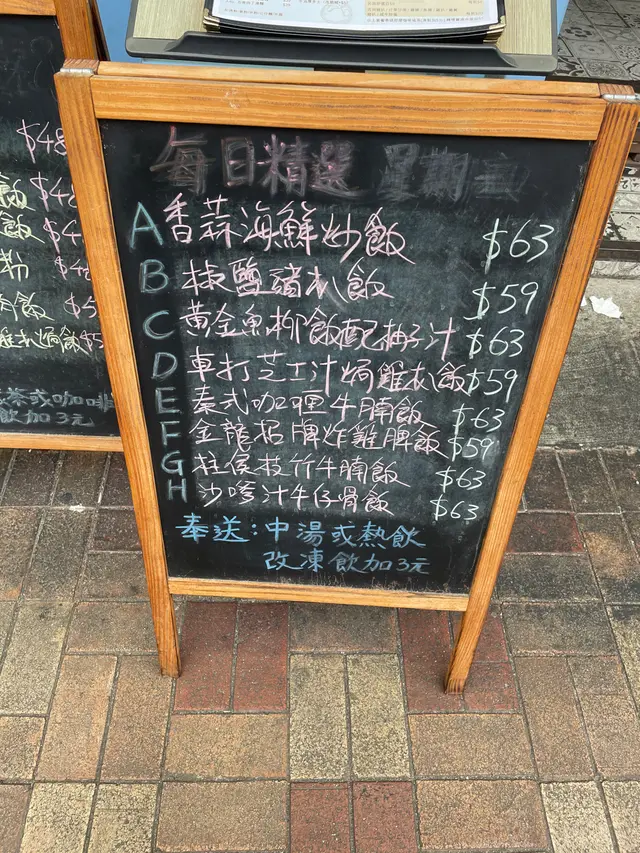 每日精選 星期五
A 香蒜海鮮炒飯 $63
B 椒鹽豬扒飯 $59
C 黃金魚柳飯配柚子汁 $63
D 車打芝士汁焗雞扒飯 $59
E 泰式咖喱牛腩飯 $63
F 金龍招牌炸雞脾飯 $59
G 柱侯枝竹牛腩飯 $63
H 沙嗲汁牛仔骨飯 $63
奉送:中湯或熱飲
改凍飲加3元
$48
$48
飯 $4
粉
肉飯 $5
焗飯 $5
茶或咖啡
飲加3元